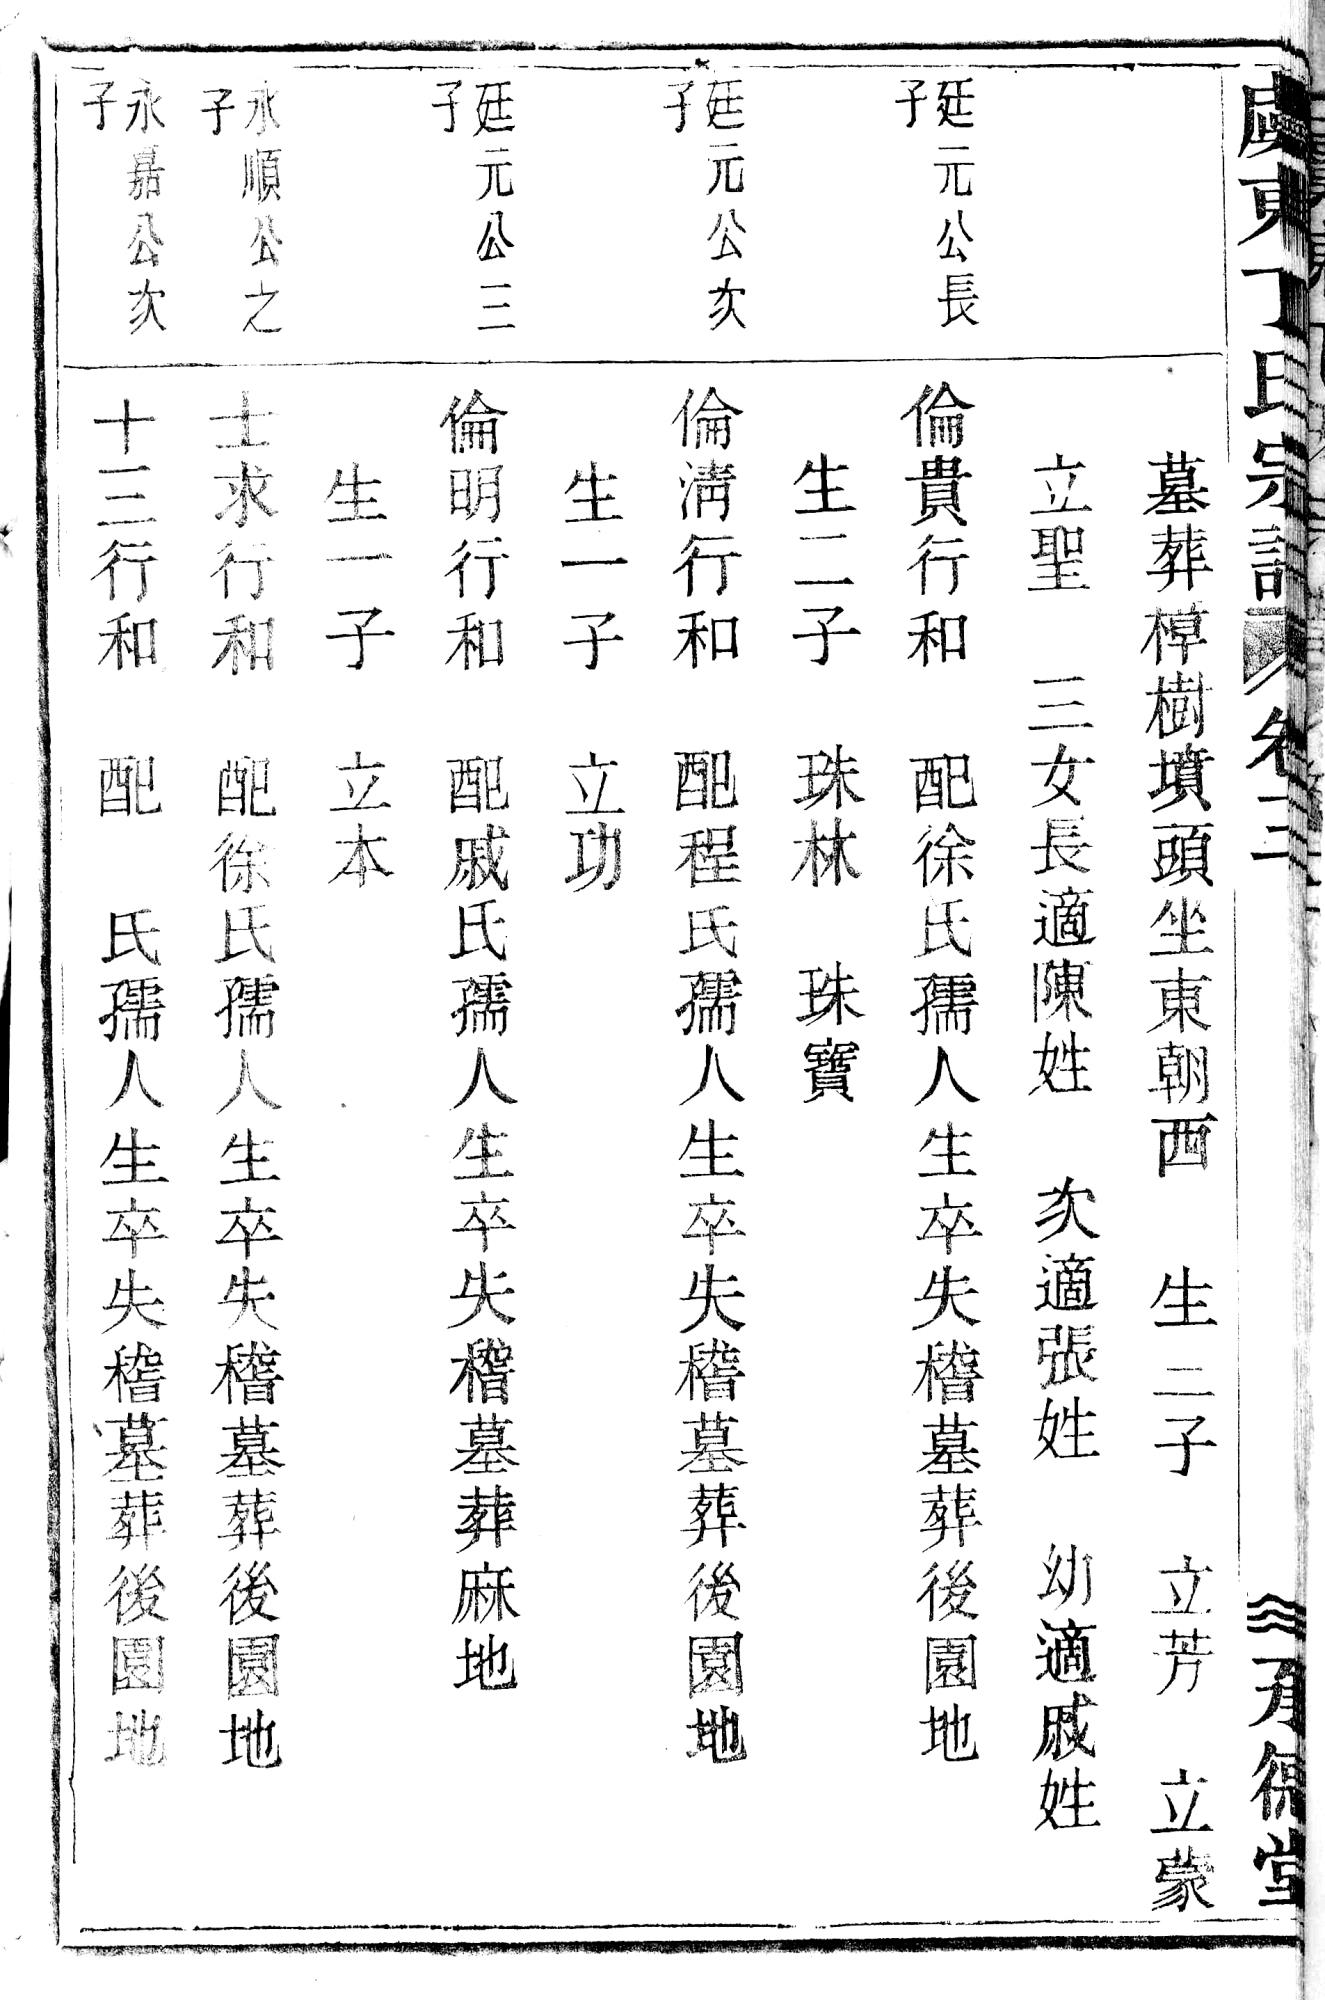 虞東丁氏宗譜 卷 承德堂
墓葬樟樹墳頭坐東朝西 生二子 立芳 立蒙
立聖 三女長適陳姓 次適張姓 幼適戚姓
廷元公長
子
倫貴行和 配徐氏孺人生卒失稽墓葬後園地
生二子 珠林 珠寶
廷元公次
子
倫清行和 配程氏孺人生卒失稽墓葬後園地
生一子 立功
廷元公三
子
倫明行和 配戚氏孺人生卒失稽墓葬麻地
生一子 立本
永順公之
子
士求行和 配徐氏孺人生卒失稽墓葬後園地
永嘉公次
子
十三行和 配 氏孺人生卒失稽墓葬後園地